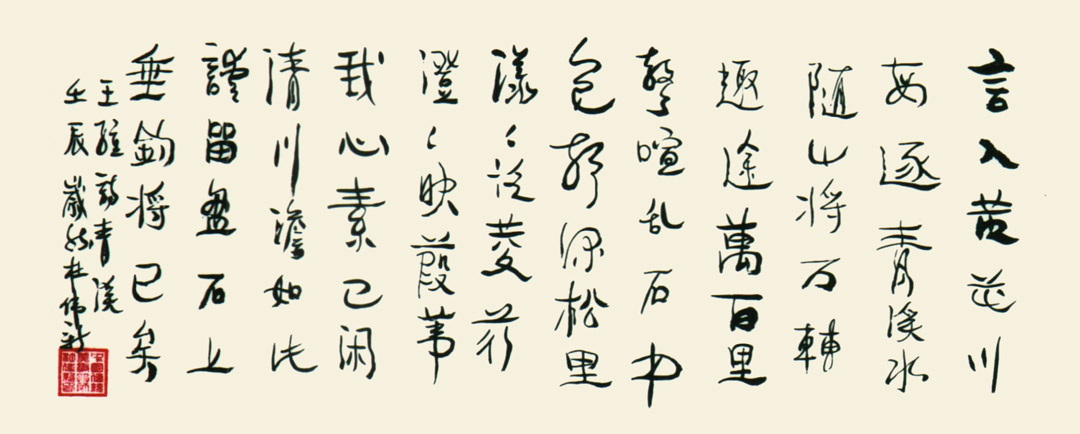 言入黄花川
每逐青溪水
隨山将万轉
趣途萬百里
聲喧乱石中
色静深松里
漾々泛菱荇
澄々映葭苇
我心素已闲
清川澹如此
請留盘石上
垂釣将已矣
王維詩青溪
壬辰歲秋杜伟